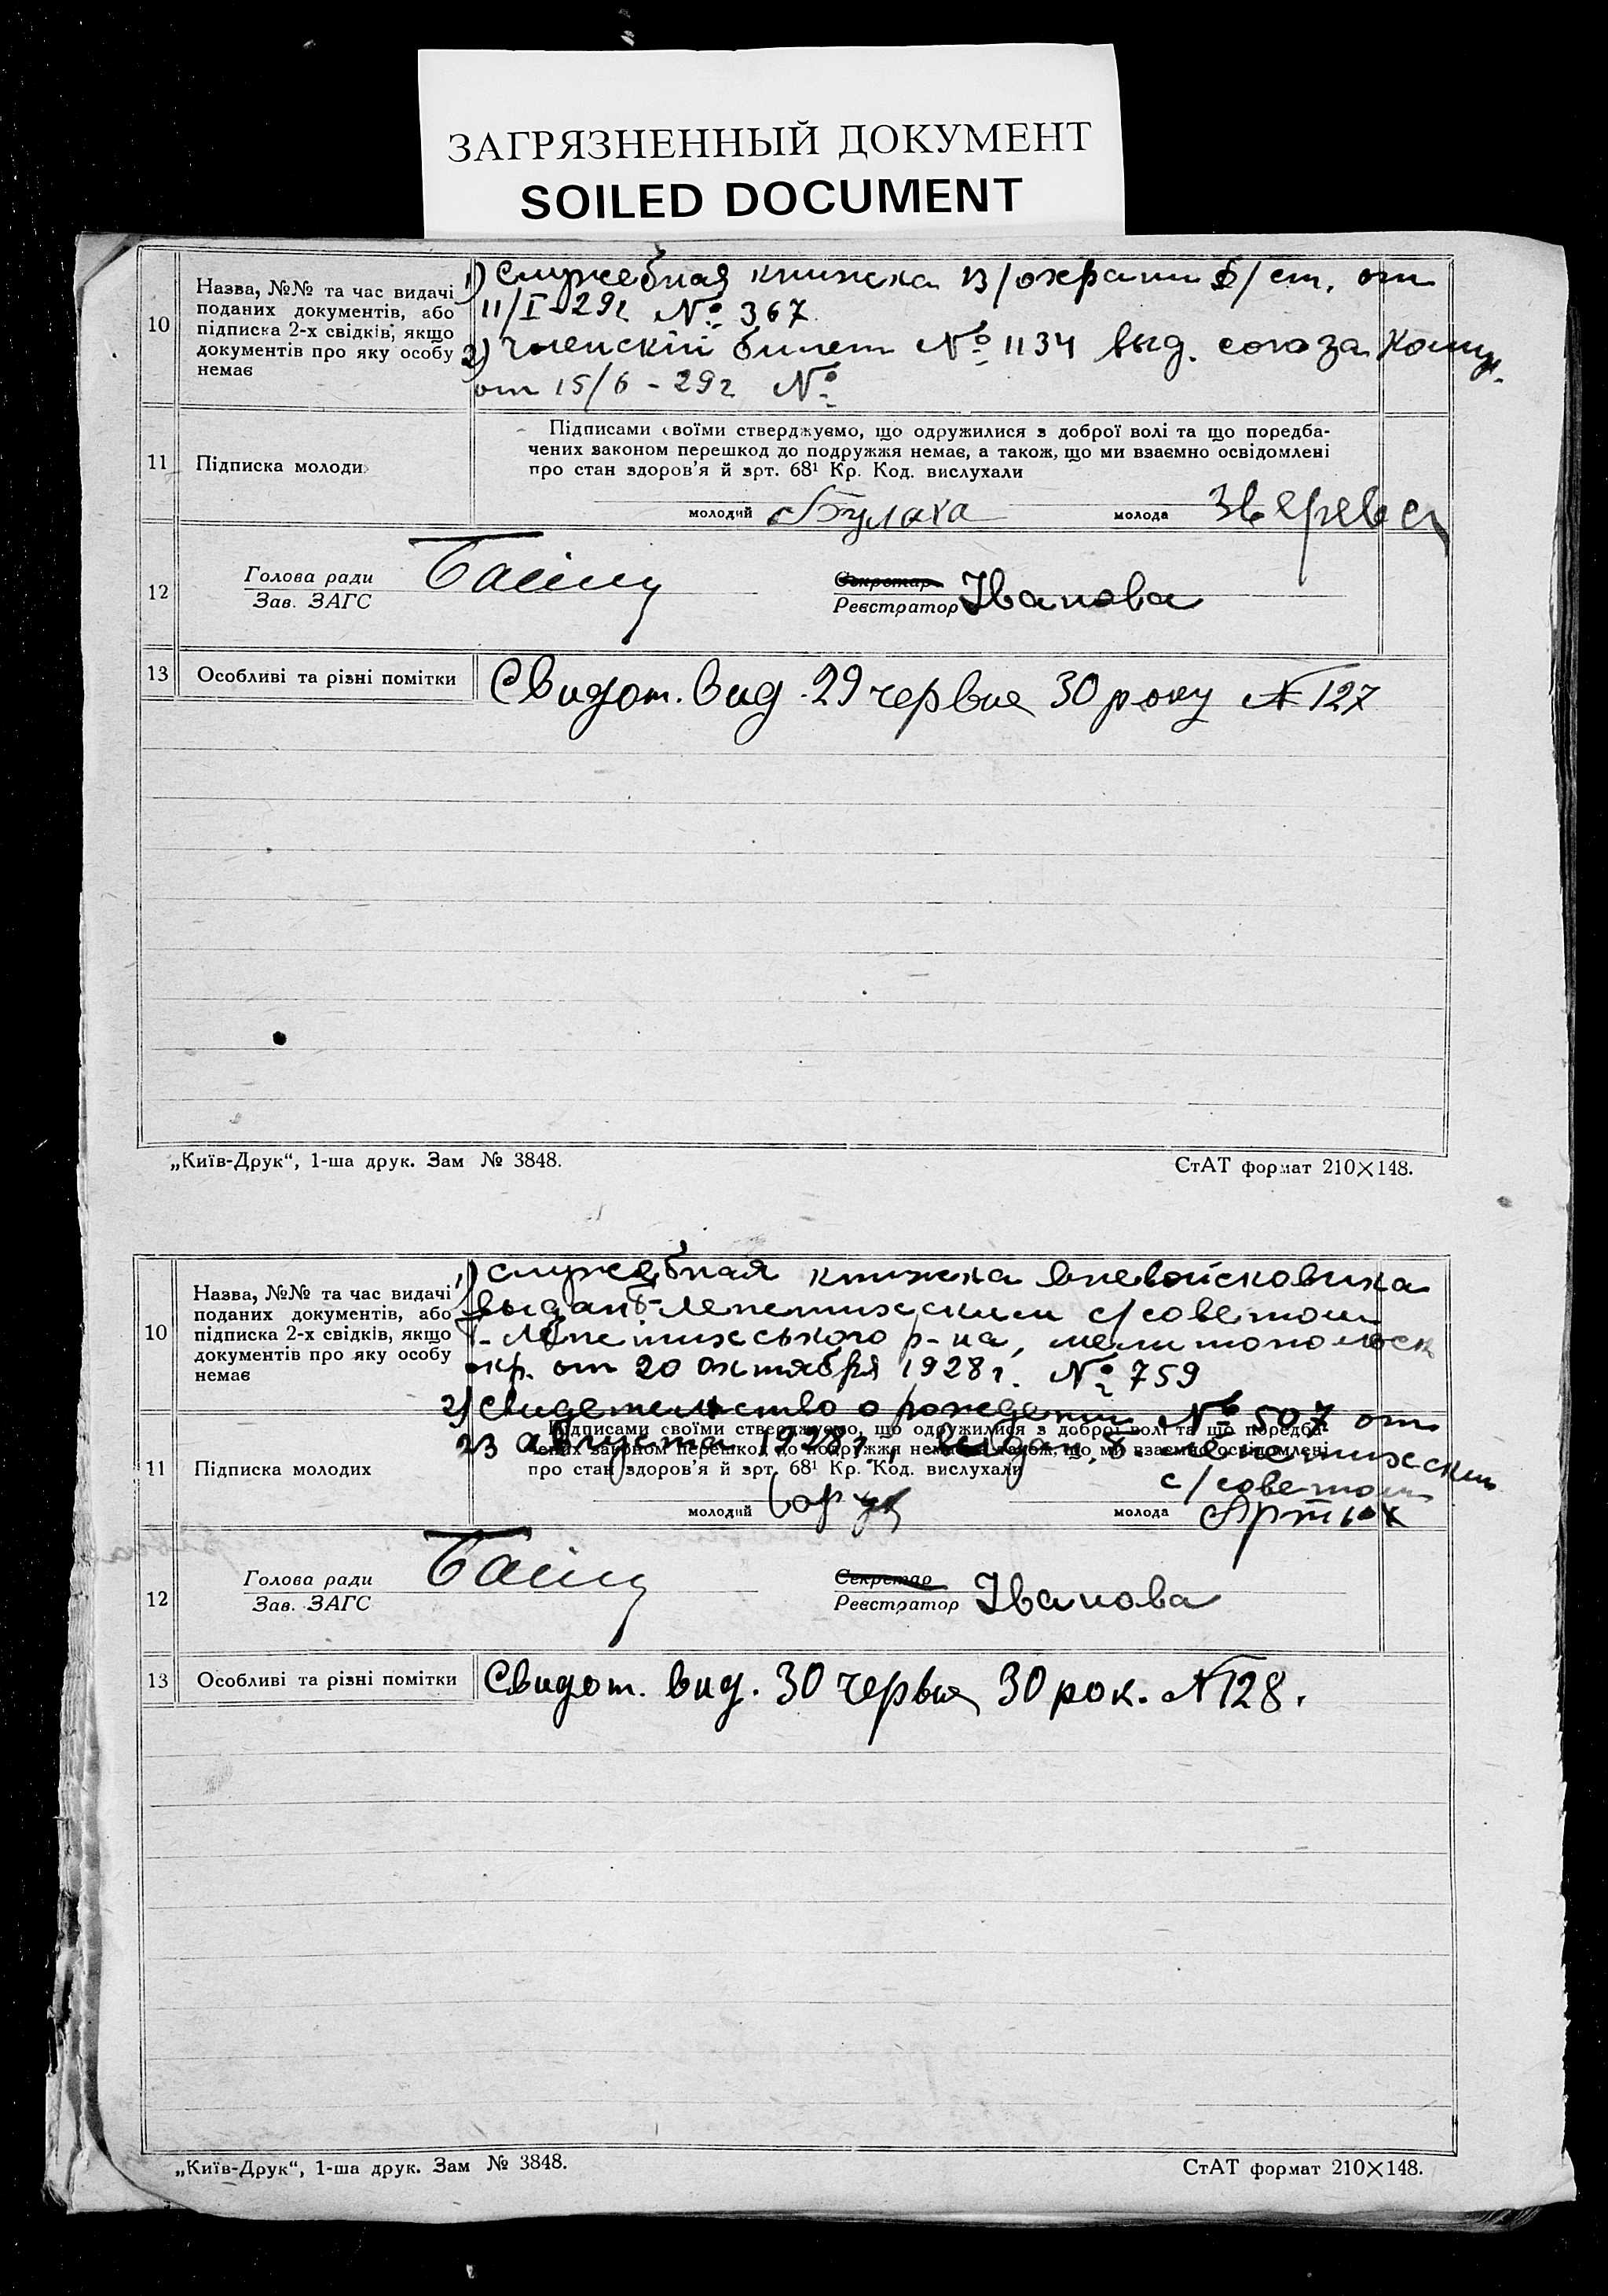 ЗАГРЯЗНЕННЫЙ ДОКУМЕНТ
SOILED DOCUMENT
10
Назва, №№ та час видачі
поданих документів, або
підписка 2-х свідків, якщо
документів про яку особу
немає
1) Служебная книжка в/охрани ст. от
11/I-29г № 367.
2) Членскій билет № 1134 выд. союза Комун.
от 15/6 - 29г №
11
Підписка молоди
Підписами своїми стверджуємо, що одружилися з доброї волі та що поредба-
чених законом перешкод до подружжя немає, а також, що ми взаємно освідомлені
про стан здоров'я й зрт. 68¹ Кр. Код. вислухали
молодий Булаха молода Зверева
12
Голова ради
Зав. ЗАГС
Секретар
Реєстратор Іванова
13
Особливі та різні помітки
Свидот. вид. 29 червня 30 року № 127
„Київ-Друк“, 1-ша друк. Зам № 3848.
СтАТ формат 210×148.
10
Назва, №№ та час видачі
поданих документів, або
підписка 2-х свідків, якщо
документів про яку особу
немає
1) Служебная книжка вневойсковика
выдан Б-Лепетихским с/советом
Лепетихського р-на, мелитопольск
окр. от 20 октября 1928г. № 759
2) Свидетельство о рождении № 507 от
23 августа 1928г., выдан. Б-Лепетихским
с/советом
11
Підписка молодих
Підписами своїми стверджуємо, що одружилися з доброї волі та що поредба-
чених законом перешкод до подружжя немає, а також, що ми взаємно освідомлені
про стан здоров'я й зрт. 68¹ Кр. Код. вислухали
молодий молода Артюх
12
Голова ради
Зав. ЗАГС
Секретар
Реєстратор Іванова
13
Особливі та різні помітки
Свидот. вид. 30 червня 30 рок. № 128.
„Київ-Друк“, 1-ша друк. Зам № 3848.
СтАТ формат 210×148.